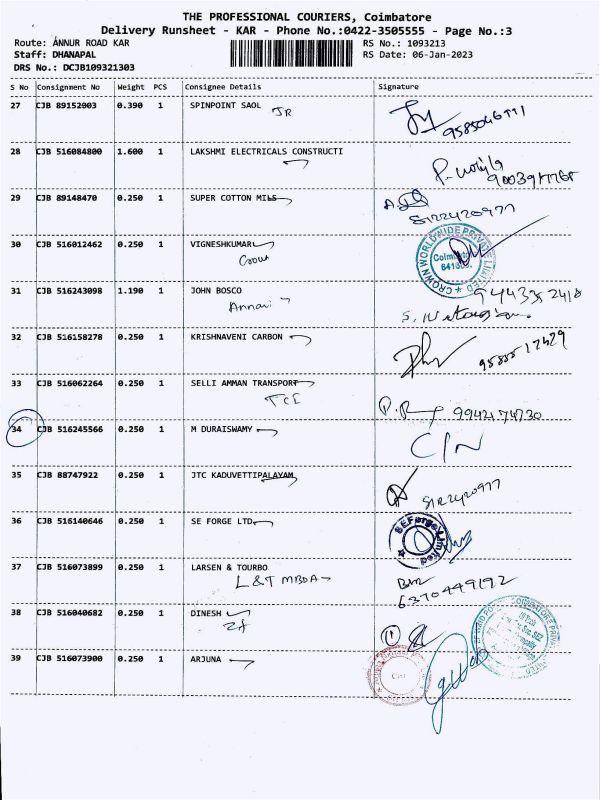 THE PROFESSIONAL COURIERS, Coimbatore
Delivery Runsheet - KAR - Phone No.:0422-3505555 - Page No.:3
Route: ANNUR ROAD KAR RS No.: 1093213
Staff: DHANAPAL RS Date: 06-Jan-2023
DRS No.: DCJB109321303
S No Consignment No Weight PCS Consignee Details Signature
27 CJB 89152003 0.390 1 SPINPOINT SAOL
JR
28 CJB 516084800 1.600 1 LAKSHMI ELECTRICALS CONSTRUCTI
29 CJB 89148470 0.250 1 SUPER COTTON MILS
8122420977
30 CJB 516012462 0.250 1 VIGNESHKUMAR
CROWN WORLDWIDE PRIVATE LIMITED
31 CJB 516243098 1.190 1 JOHN BOSCO
Annai
32 CJB 516158278 0.250 1 KRISHNAVENI CARBON
33 CJB 516062264 0.250 1 SELLI AMMAN TRANSPORT
TCI
P.R 9942174730
34 CJB 516245566 0.250 1 M DURAISWAMY
C/N
35 CJB 88747922 0.250 1 JTC KADUVETTIPALAYAM
8122420977
36 CJB 516140646 0.250 1 SE FORGE LTD
SEForge Limited
37 CJB 516073899 0.250 1 LARSEN & TOURBO
L&T MBDA
6370449192
38 CJB 516040682 0.250 1 DINESH
ZF
39 CJB 516073900 0.250 1 ARJUNA